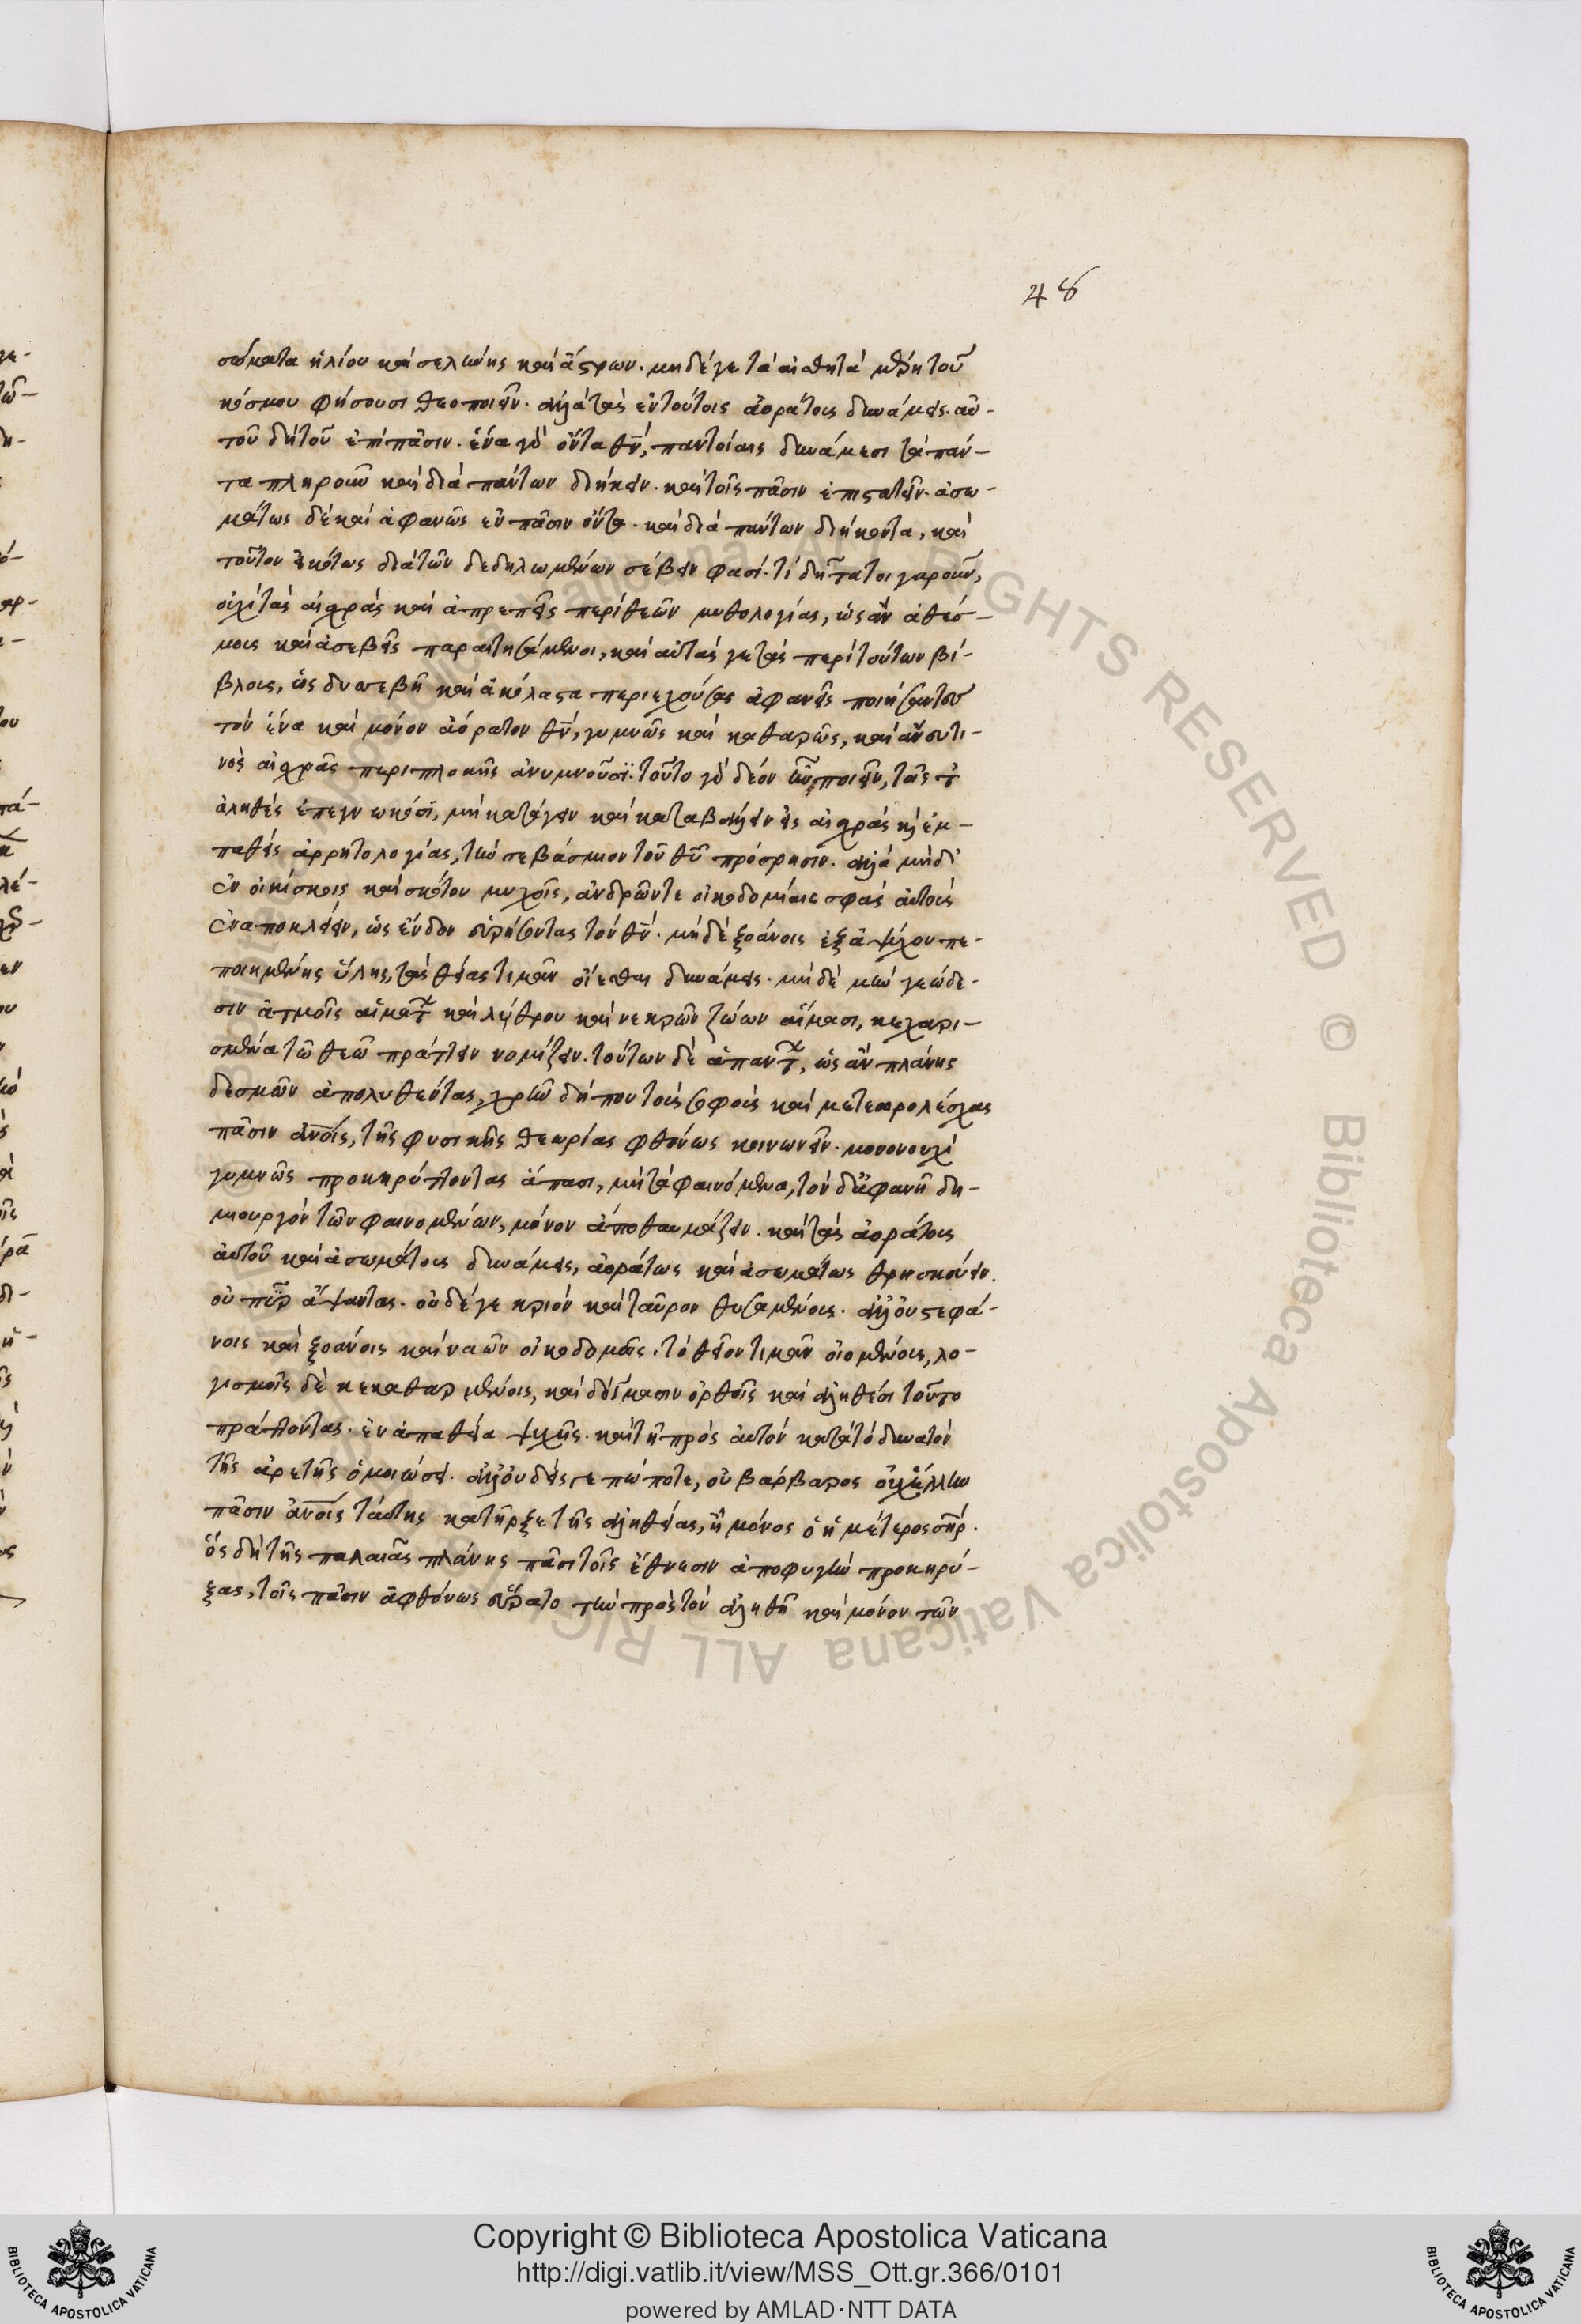 48
σώματα ἡλίου καὶ σελήνης καὶ ἄστρων. μηδέ γε τὰ αἰσθητὰ μέρη τοῦ
κόσμου φήσουσι θεοποιεῖν. ἀλλὰ τὰς ἐν τούτοις ἀοράτους δυνάμεις. αὐ-
τοῦ δὴ τοῦ ἐπὶ πᾶσιν. ἕνα γὰρ ὄντα θν, παντοίαις δυνάμεσι τὰ πάν-
τα πληροῦν καὶ διὰ πάντων διήκειν. καὶ τοῖς πᾶσιν ἐπιστατεῖν. ἀσω-
μάτως δὲ καὶ ἀφανῶς ἐν πᾶσιν ὄντα. καὶ διὰ πάντων διήκοντα, καὶ
τοῦτον εἰκότως διὰ τῶν δεδηλωμένων σέβειν φασί. τί δῆτα τοιγαροῦν,
οὐχὶ τὰς αἰσχρὰς καὶ ἀπρεπεῖς περὶ θεῶν μυθολογίας, ὡς ἂν ἀθέσ-
μους καὶ ἀσεβεῖς παραιτησάμενοι, καὶ αὐτάς γε τὰς περὶ τούτων βί-
βλους, ὡς δυσσεβῆ καὶ ἀκόλαστα περιεχούσας ἀφανεῖς ποιήσαντες
τὸν ἕνα καὶ μόνον ἀόρατον θν, γυμνῶς καὶ καθαρῶς, καὶ ἄνευ τι-
νὸς αἰσχρᾶς περιπλοκῆς ἀνυμνοῦσι. τοῦτο γὰρ δέον ἦν ποιεῖν, τοῖς τὸ
ἀληθὲς ἐπεγνωκόσι, μὴ κατάγειν καὶ καταβάλλειν εἰς αἰσχρὰς καὶ ἐμ-
παθεῖς ἀρρητολογίας, τὴν σεβάσμιον τοῦ θυ πρόσρησιν. ἀλλὰ μηδ'
ἐν οἰκίσκοις καὶ σκότου μυχοῖς, ἀνδρῶν τε οἰκοδομίαις σφᾶς αὐτοὺς
ἐναποκλείειν, ὡς ἔνδον εὑρήσοντας τὸν θν. μὴ δὲ ξοάνοις ἐξ ἀψύχου πε-
ποιημένης ὕλης, τὰς θείας τιμᾶν οἴεσθαι δυνάμεις. μὴ δὲ μὴν γεώδε-
σιν ἀτμοῖς αἱμάτων καὶ λύθρου καὶ νεκρῶν ζώων αἵμασι, κεχαρι-
σμένα τῶ θεῶ πράττειν νομίζειν. τούτων δὲ ἁπάντων, ὡς ἂν πλάνης
δεσμῶν ἀπολυθέντας, χρῆν δήπου τοὺς σοφοὺς καὶ μετεωρολέσχας
πᾶσιν ἀνοις, τῆς φυσικῆς θεωρίας φθόνως κοινωνεῖν. μονονουχὶ
γυμνῶς προκηρύττοντας ἅπασι, μὴ τὰ φαινόμενα, τὸν δ' ἀφανῆ δη-
μιουργὸν τῶν φαινομένων, μόνον ἀποθαυμάζειν. καὶ τὰς ἀοράτους
αὐτοῦ καὶ ἀσωμάτους δυνάμεις, ἀοράτως καὶ ἀσωμάτως θρησκεύειν.
οὐ πῦρ ἅψαντας. οὐδέ γε κριὸν καὶ ταῦρον θυσαμένους. ἀλλ' οὐ στεφά-
νοις καὶ ξοάνοις καὶ ναῶν οἰκοδομαῖς. τὸ θεῖον τιμᾶν οἰομένους, λο-
γισμοῖς δὲ κεκαθαρμένοις, καὶ δόγμασιν ὀρθοῖς καὶ ἀληθέσι τοῦτο
πράττοντας. ἐν ἀπαθεία ψυχῆς. καὶ τῆ πρὸς αὐτὸν κατὰ τὸ δυνατὸν
τῆς ἀρετῆς ὁμοιώσει. ἀλλ' οὐδείς γε πώποτε, οὐ βάρβαρος οὐχ ἕλλην
πᾶσιν ἀνοις ταύτης κατῆρξε τῆς ἀληθείας, ἢ μόνος ὁ ἡμέτερος σηρ.
ὃς δὴ τῆς παλαιᾶς πλάνης πᾶσι τοῖς ἔθνεσιν ἀποφυγὴν προκηρύ-
ξας, τοῖς πᾶσιν ἀφθόνως εὕρατο τὴν πρὸς τὸν ἀληθῆ καὶ μόνον τῶν
Copyright © Biblioteca Apostolica Vaticana
http://digi.vatlib.it/view/MSS_Ott.gr.366/0101
powered by AMLAD·NTT DATA